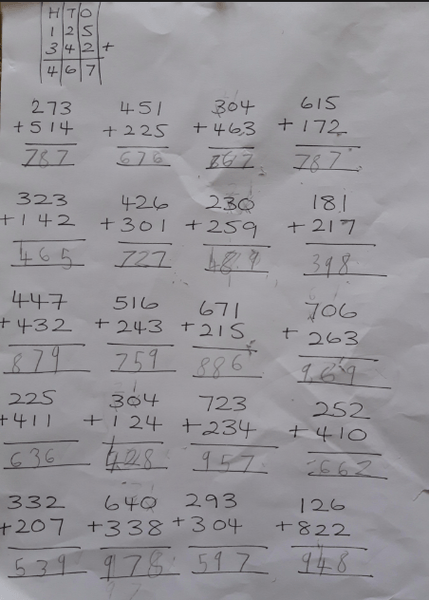 H T O
1 2 5
3 4 2 +
4 6 7
273 451 304 615
+514 +225 +463 +172
787 676 767 787
323 426 230 181
+142 +301 +259 +217
465 727 489 398
447 516 671 706
+432 +243 +215 +263
879 759 886 969
225 304 723 252
+411 +124 +234 +410
636 428 957 662
332 640 293 126
+207 +338 +304 +822
539 978 597 948